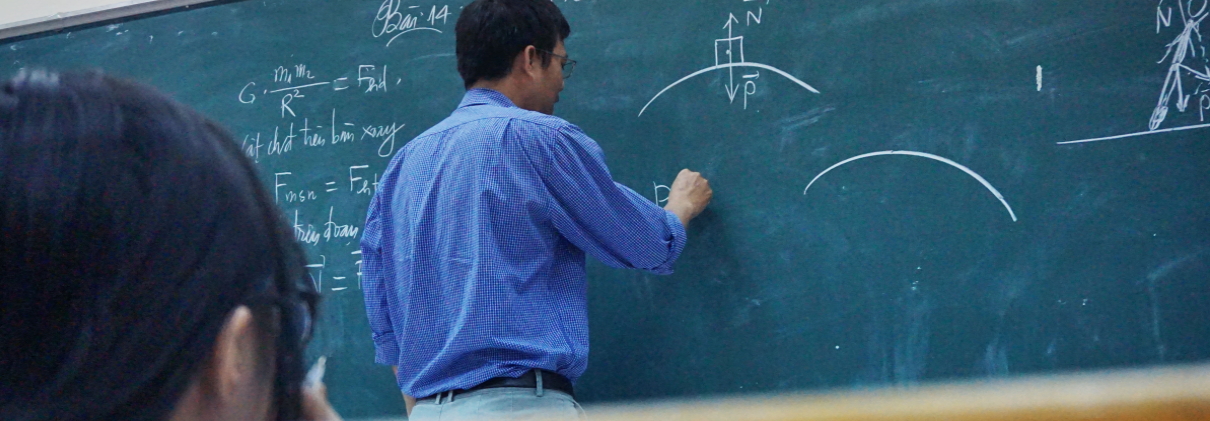 Bài 14
G. m₁m₂ / R² = Fhd.
Vật chđ trên bàn xoay
Fmsn = Fht
trên đoạn
N⃗ =
N⃗
P⃗
P
N
P⃗